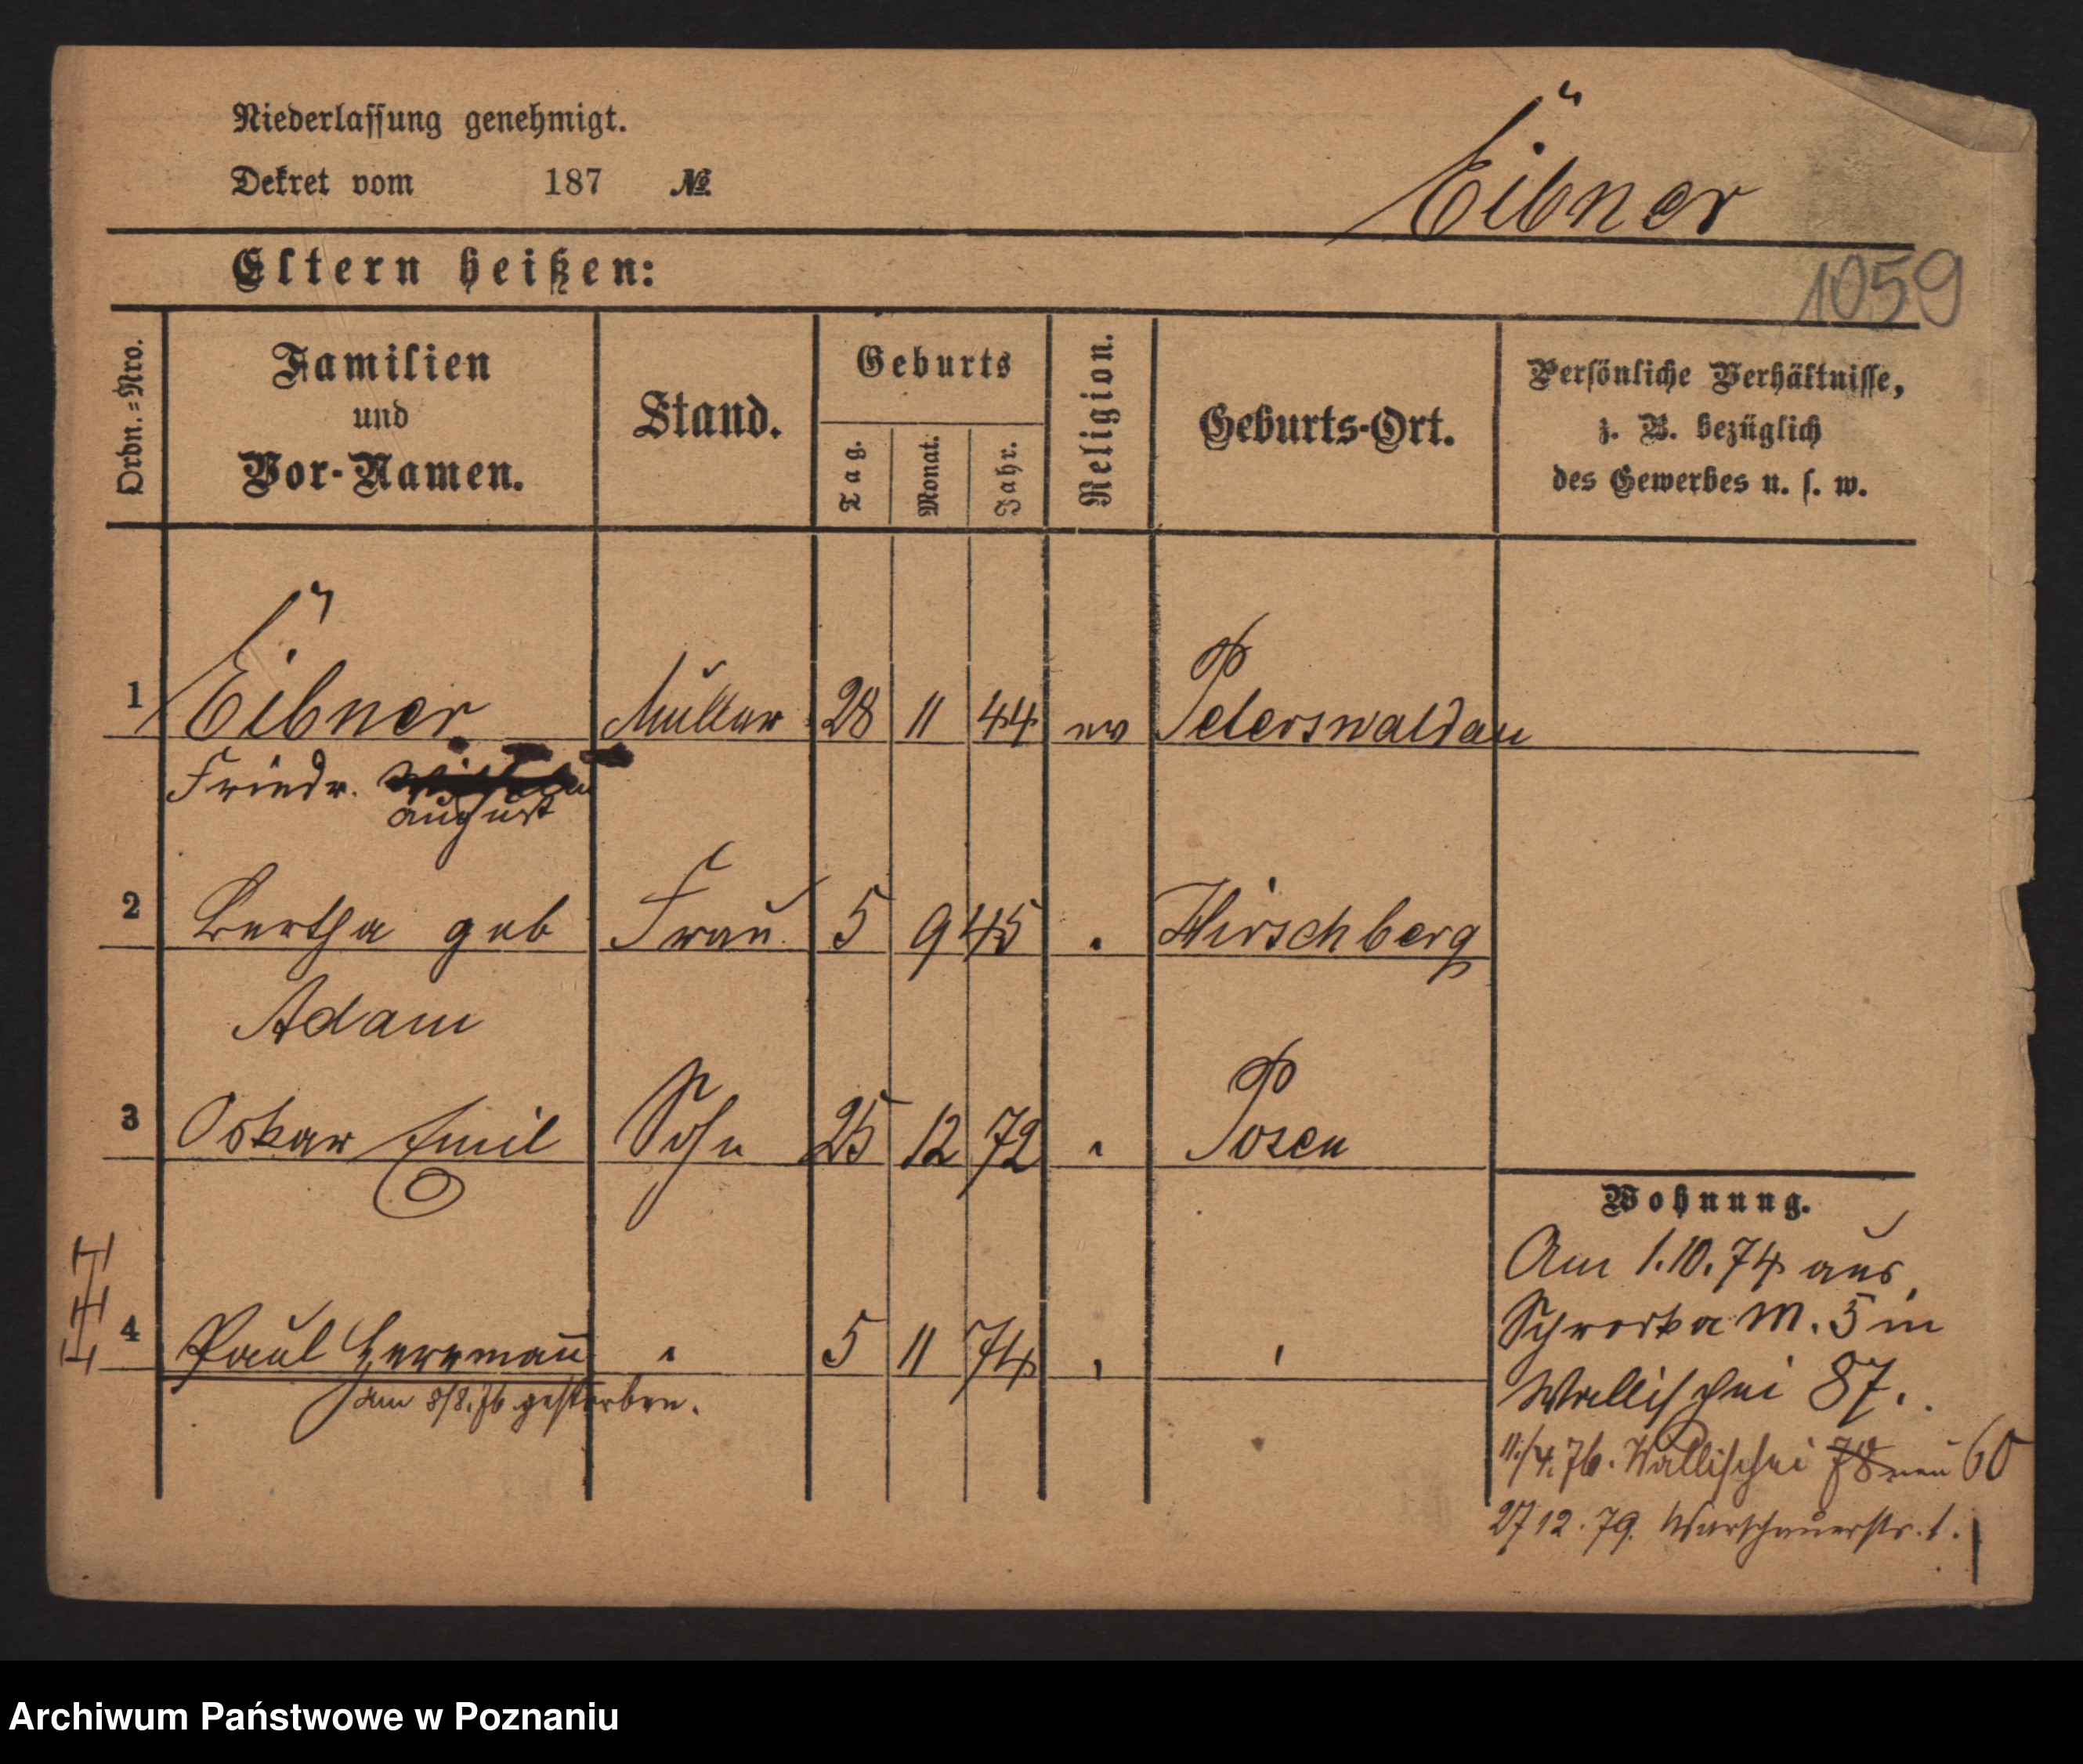 Niederlassung genehmigt.
Dekret vom 187 No.
Eibner
Eltern heißen:
1059
Ordn.=Nro.
Familien und Vor-Namen.
Stand.
Geburts
Tag.
Monat.
Jahr.
Religion.
Geburts-Ort.
Persönliche Verhältnisse,
z. B. bezüglich
des Gewerbes u. s. w.
1 Eibner Müller 28 11 44 ev Peterswaldau
Friedr.
August
2 Bertha geb Frau 5 9 45 " Hirschberg
Adam
3 Oskar Emil Sohn 25 12 72 " Posen
4 Paul Herrmann " 5 11 74 " "
am 8/8.76 gestorben.
Wohnung.
Am 1.10.74 aus
Schrodka M. 5 in
Wallischei 87.
11/4.76. Wallischei 78 neu 60
27 12. 79. Warschauerstr. 1.
Archiwum Państwowe w Poznaniu